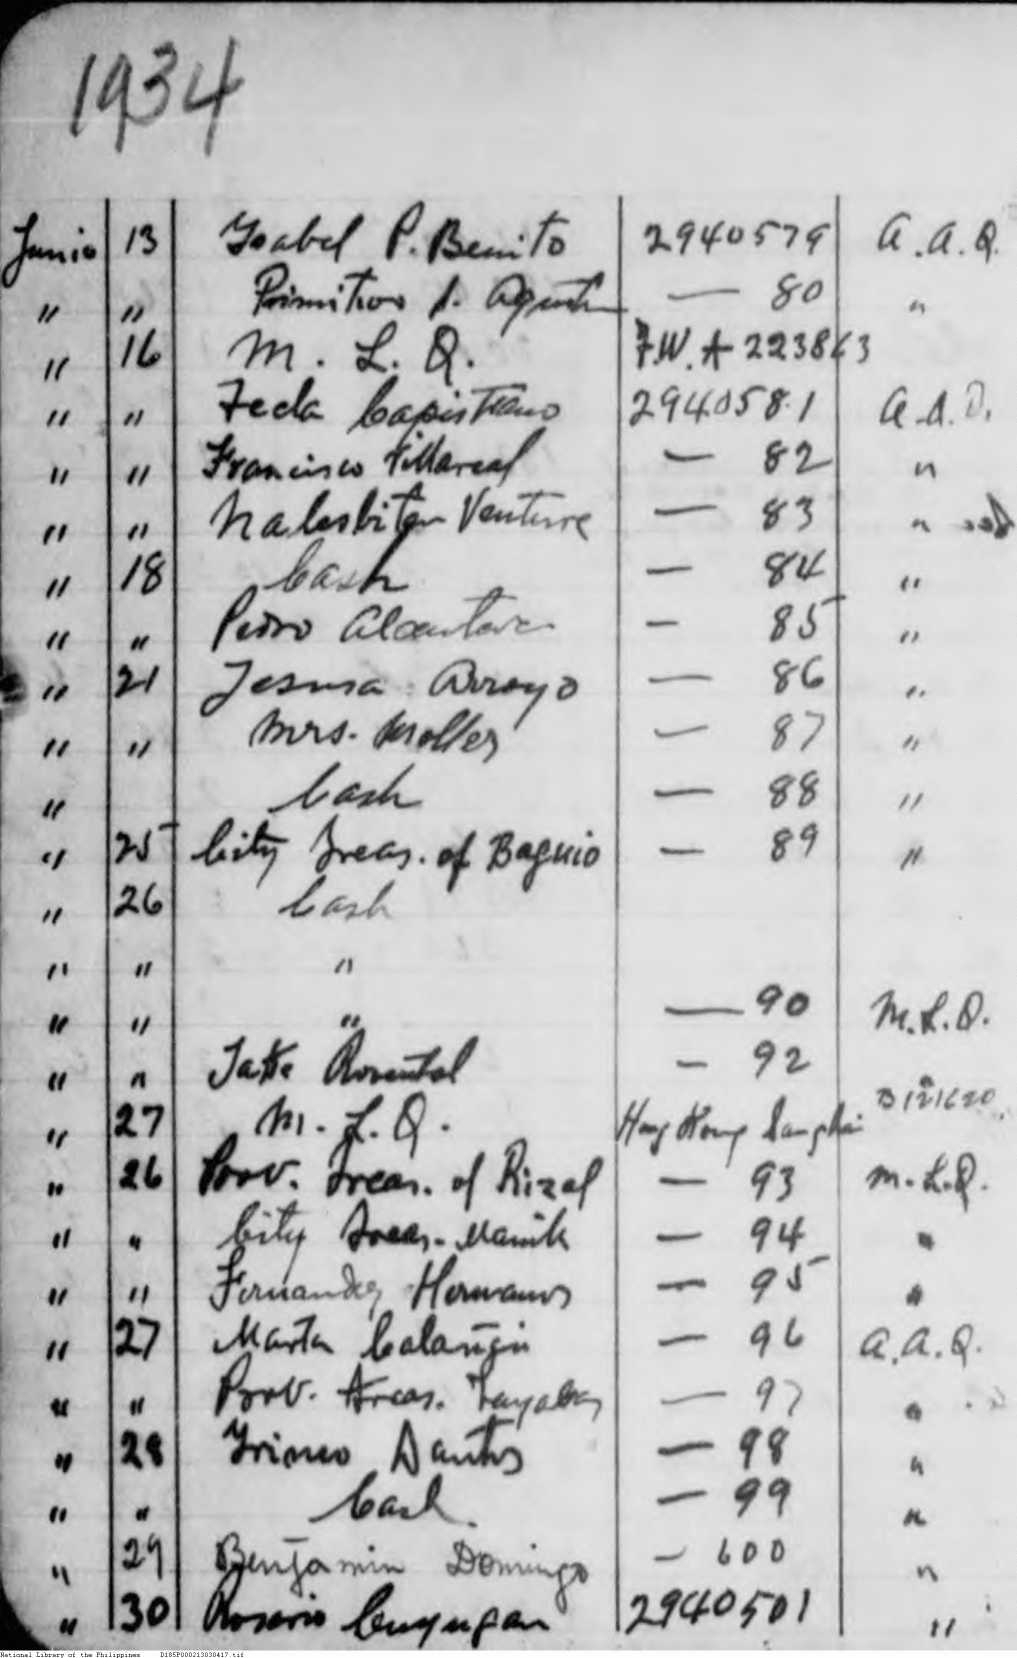 1934
Junio 13 Ysabel P. Benito 2940579 A.A.Q.
" " Primitivo 80 "
" 16 M. L. Q. F.W.A 223863
" " Tecla Capistrano 2940581 A.A.Q.
" " Francisco Villareal — 82 "
" " Venture — 83 "
" 18 Cash — 84 "
" " Pedro Alcantara — 85 "
" 21 Jesusa Arroyo — 86 "
" " Mrs. Moller — 87 "
" Cash — 88 "
" 25 City Treas. of Baguio — 89 "
" 26 Cash
" " "
" " " — 90 M.L.Q.
" " Rosental — 92
" 27 M. L. Q. Hong Kong B 121620
" 26 Prov. Treas. of Rizal — 93 M.L.Q.
" " City Treas. Manila — 94 "
" " Fernandez Hermanos — 95 "
" 27 Marta — 96 A.A.Q.
" " Prov. Treas. Tayabas — 97 "
" 28 Yrineo Dantes — 98 "
" " Cash — 99 "
" 29 Benjamin Domingo — 600 "
" 30 Rosario Cuyugan 2940501 "
National Library of the Philippines D185P000213030417.tif